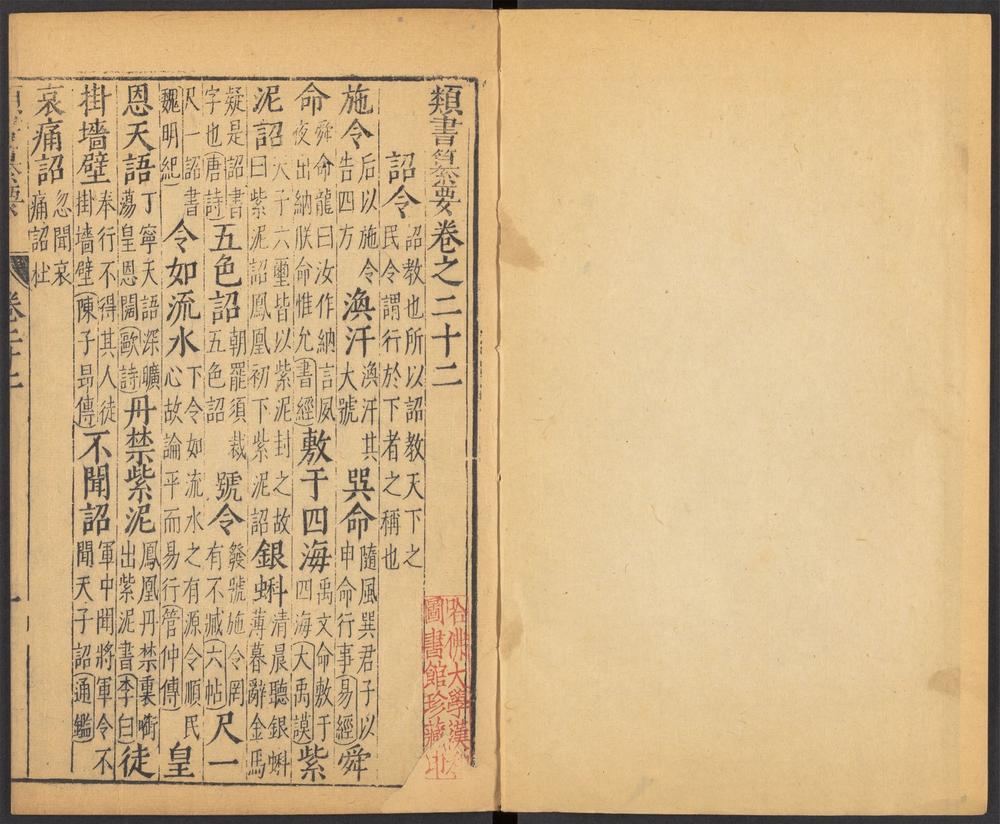 類書纂要卷之二十二
詔令詔教也所以詔教天下之民令謂行於下者之稱也
施令后以施令告四方渙汗渙汗其大號巽命隨風巽君子以申命行事易經舜
命舜命龍曰汝作納言夙夜出納朕命惟允書經敷于四海禹文命敷于四海大禹謨紫
泥詔天子六璽皆以紫泥封之故曰紫泥詔鳳凰初下紫泥詔銀蝌清晨聽銀蝌薄暮辭金馬
疑是詔書字也唐詩五色詔朝罷須裁五色詔號令發號施令罔有不臧六帖尺一
尺一詔書魏明紀令如流水下令如流水之有源令順民心故論平而易行管仲傳皇
恩天語丁寧天語深曠蕩皇恩闊歐詩丹禁紫泥鳳凰丹禁裏啣出紫泥書李白徒
掛墻壁奉行不得其人徒掛墻壁陳子昂傳不聞詔軍中聞將軍令不聞天子詔通鑑
哀痛詔忽聞哀痛詔杜
卷二十二 一
哈佛大學漢和
圖書館珍藏印